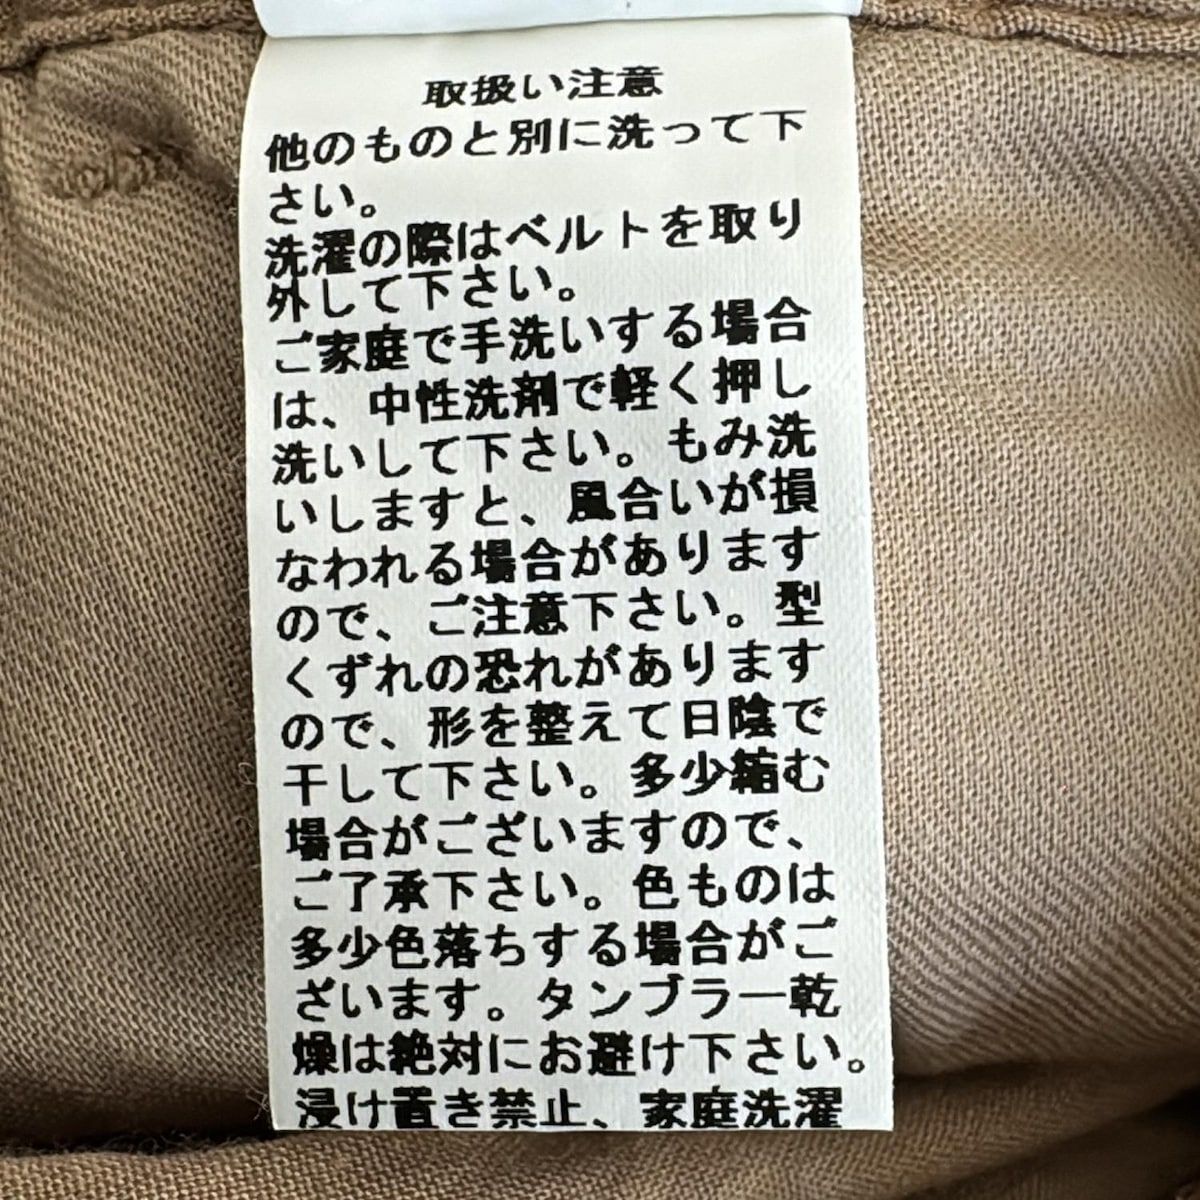 取扱い注意
他のものと別に洗って下
さい。
洗濯の際はベルトを取り
外して下さい。
ご家庭で手洗いする場合
は、中性洗剤で軽く押し
洗いして下さい。もみ洗
いしますと、風合いが損
なわれる場合があります
ので、ご注意下さい。型
くずれの恐れがあります
ので、形を整えて日陰で
干して下さい。多少縮む
場合がございますので、
ご了承下さい。色ものは
多少色落ちする場合がご
ざいます。タンブラー乾
燥は絶対にお避け下さい。
浸け置き禁止、家庭洗濯